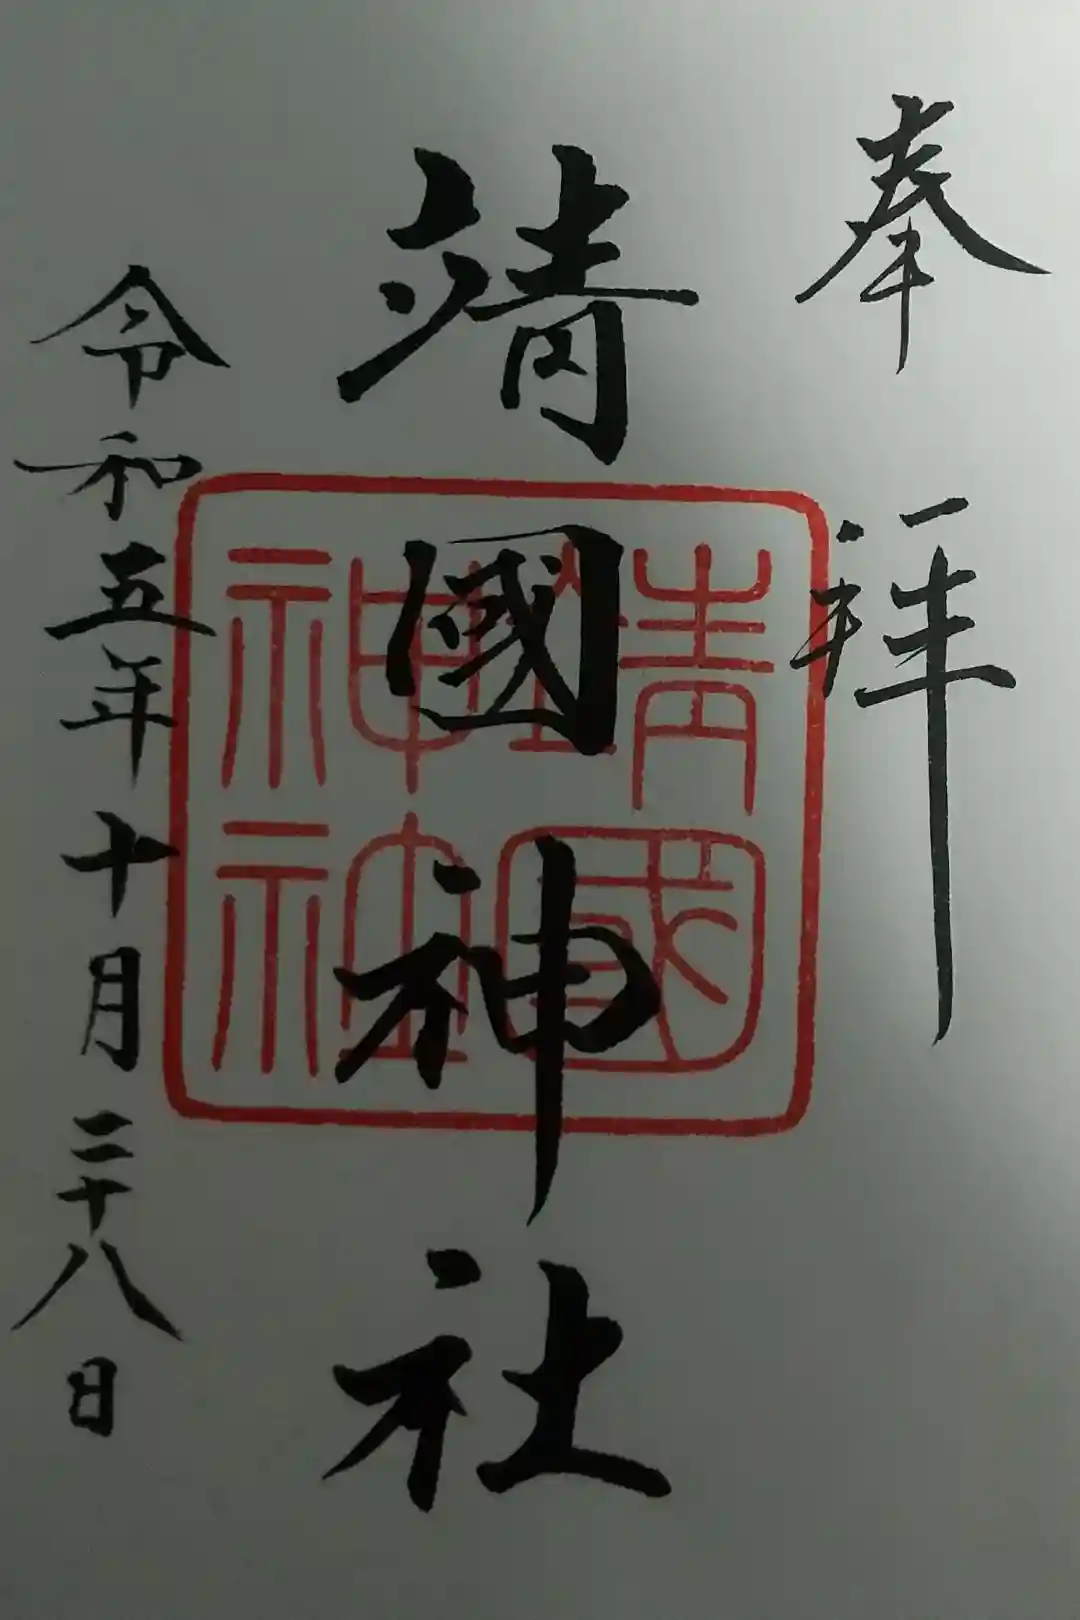 奉拝
靖國神社
靖國
神社
令和五年十月二十八日